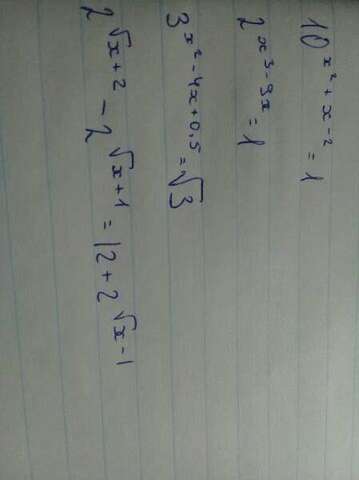 10^{x² + x - 2} = 1
2^{x³ - 9x} = 1
3^{x² - 4x + 0,5} = √3
2^{√x + 2} - 2^{√x + 1} = 12 + 2^{√x - 1}